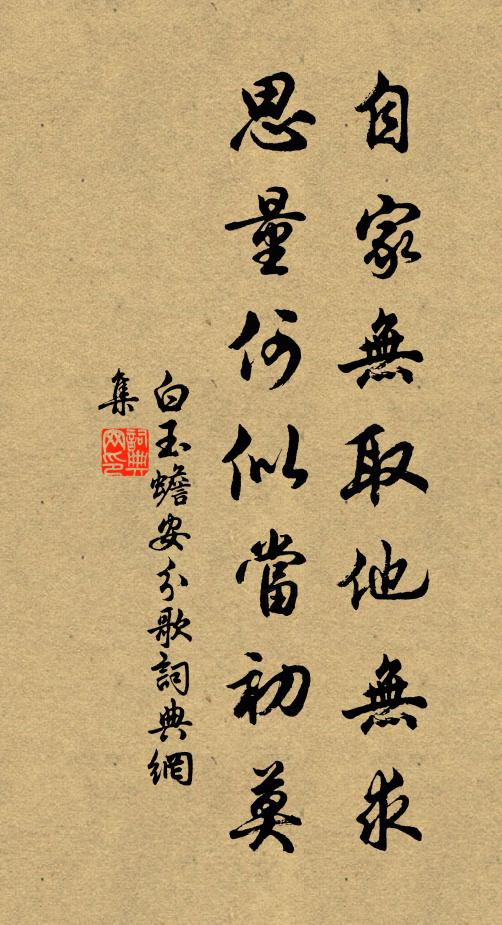 自家無取他無求
思量何似當初莫
白玉蟾安分歌詞典網
集
詞典
网印